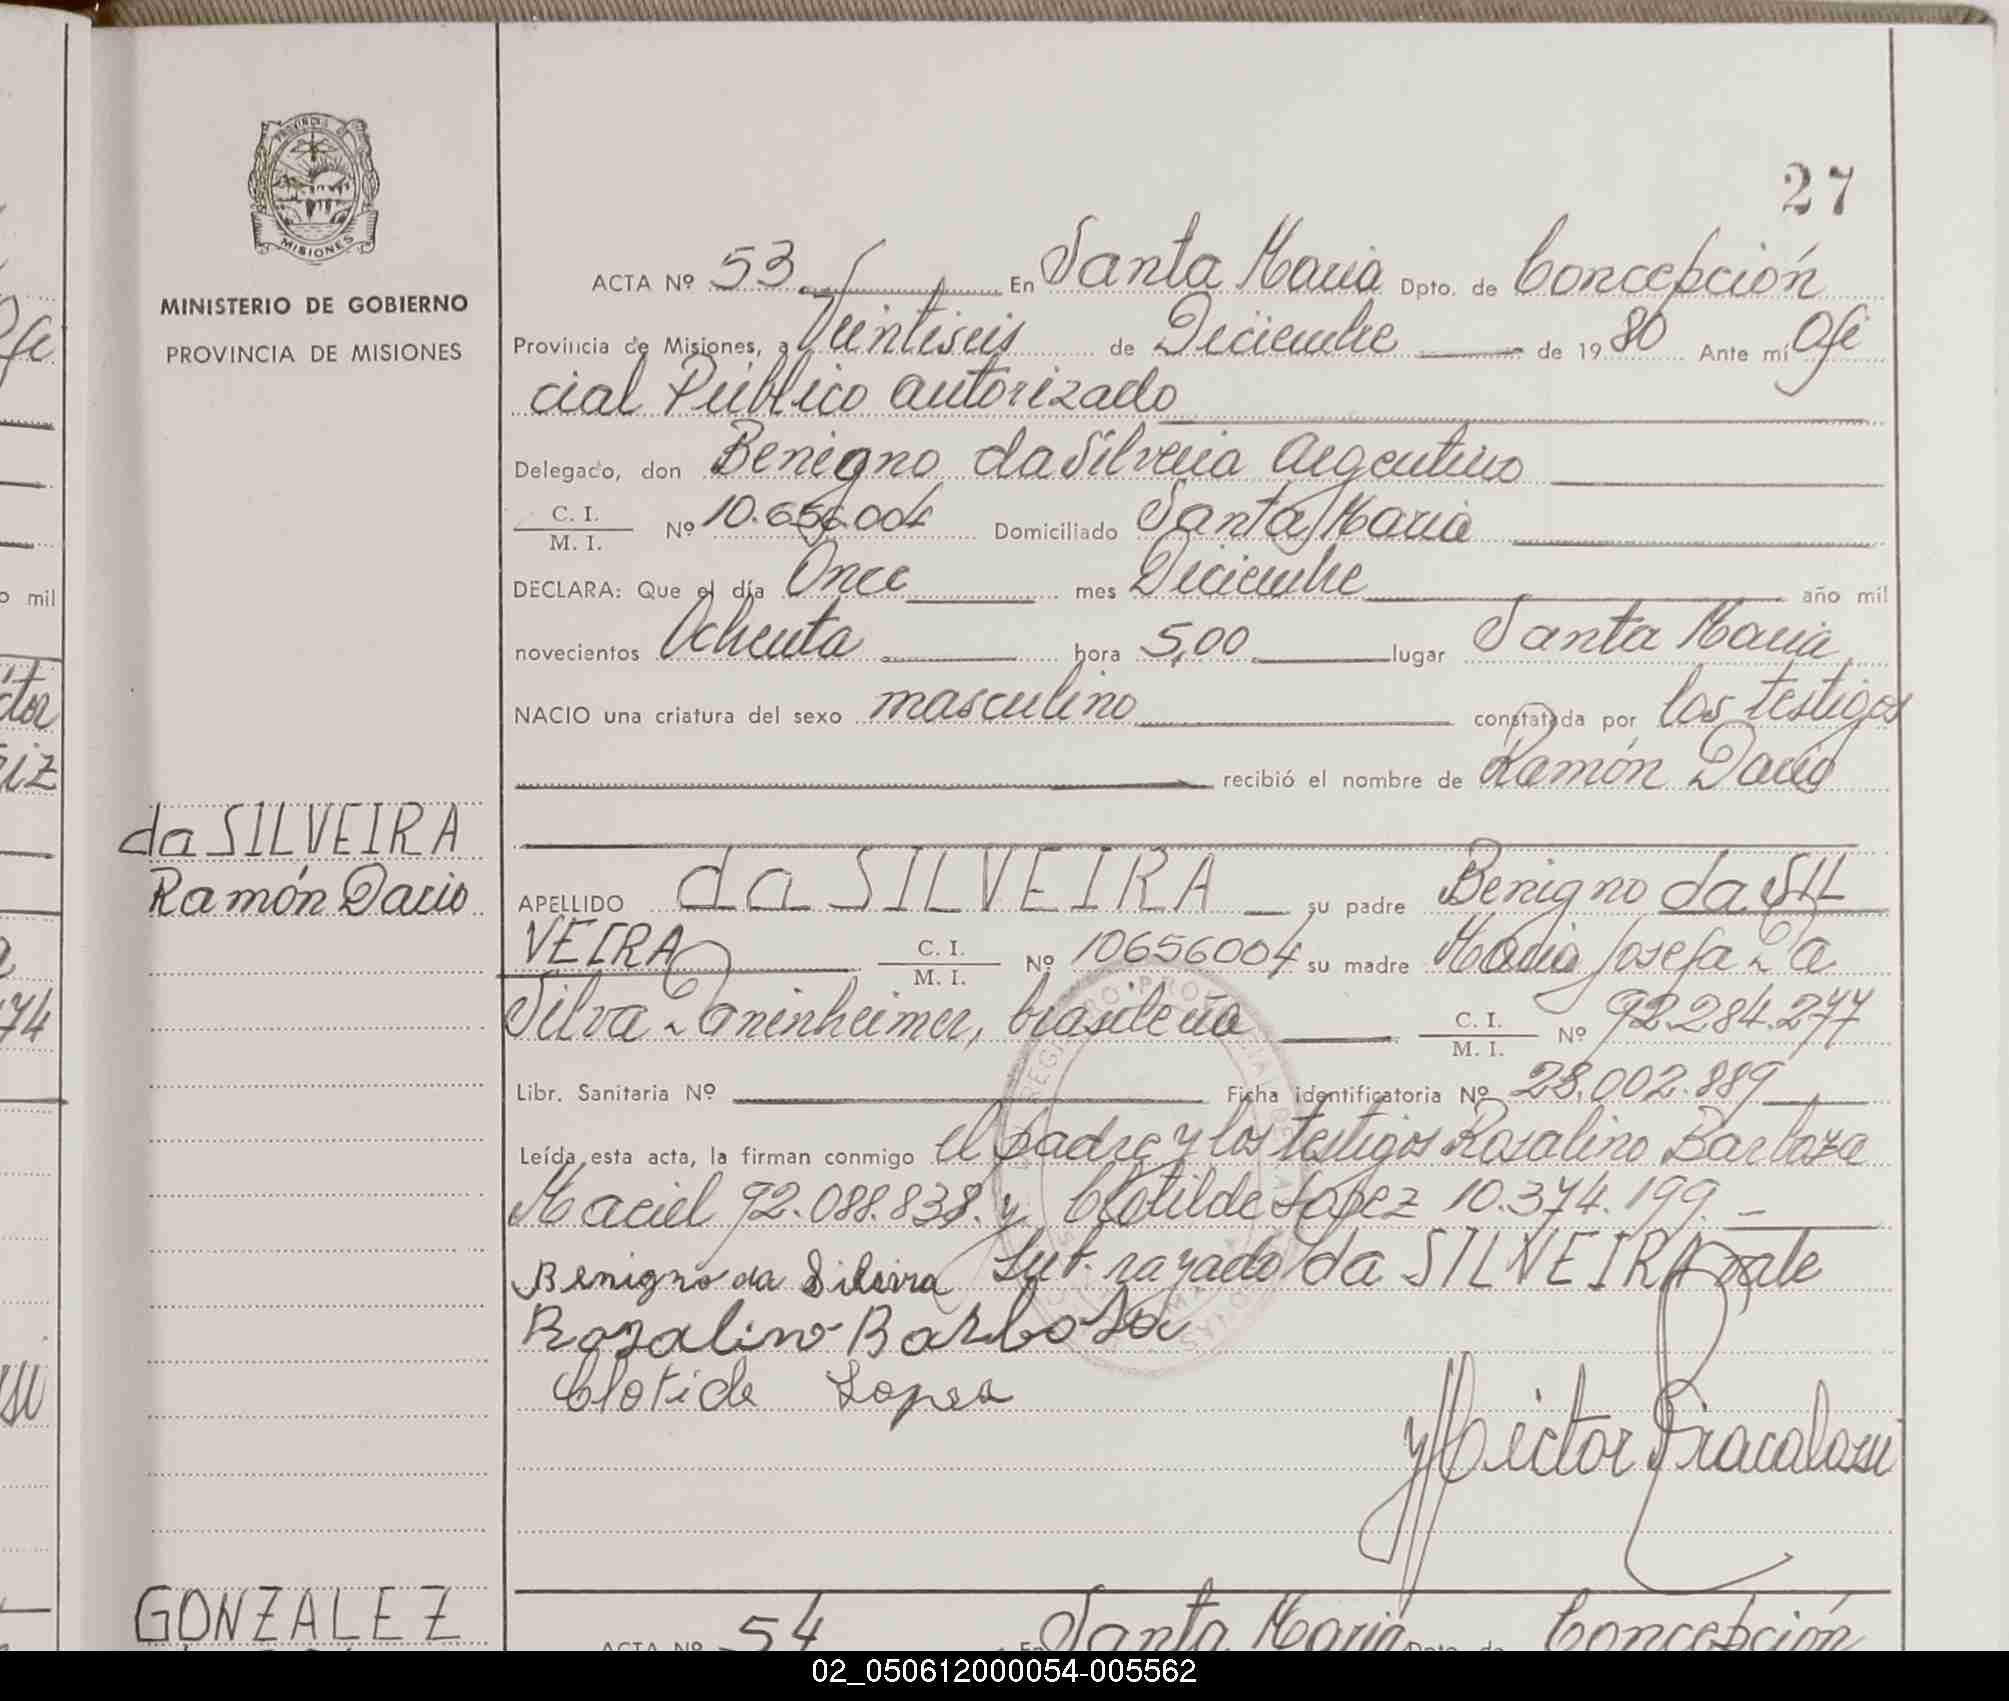 PROVINCIA DE
MISIONES
MINISTERIO DE GOBIERNO
PROVINCIA DE MISIONES
27
ACTA Nº 53 En Santa Maria Dpto. de Concepción
Provincia de Misiones, a Veintiseis de Diciembre de 19 80 Ante mí Ofi
cial Público autorizado
Delegado, don Benigno da Silveira Argentino
C. I. / M. I. Nº 10.656.004 Domiciliado Santa Maria
DECLARA: Que el día Once mes Diciembre año mil
novecientos Ochenta hora 5,00 lugar Santa Maria
NACIO una criatura del sexo masculino constatada por los testigos
recibió el nombre de Ramón Dario
da SILVEIRA
Ramón Dario
APELLIDO da SILVEIRA su padre Benigno da SIL
VEIRA C. I. / M. I. Nº 10656004 su madre Maria Josefa Da
Silva Daninheimer, brasileña C. I. / M. I. Nº 92.284.277
Libr. Sanitaria Nº Ficha identificatoria Nº 28.002.889
Leída esta acta, la firman conmigo el padre y los testigos Rosalino Barboza
Maciel 92.088.838. y Clotilde Lopez 10.374.199.
Benigno da Silveira Sub. rayado da SILVEIRA vale
Rozalino Barboza
Clotide Lopes
Hector
GONZALEZ
ACTA Nº 54 En Santa Maria Dpto. de Concepción
o mil
74
02_050612000054-005562